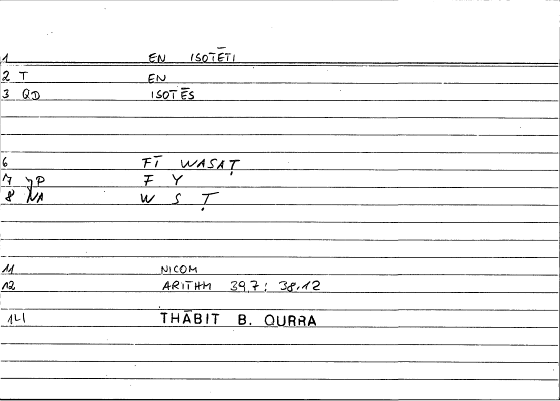 1 EN ISOTĒTI
2 T EN
3 QD ISOTĒS
6 FĪ WASAṬ
7 YP F Y
8 NA W S Ṭ
11 NICOM
12 ARITHM 39,7: 38.12
141 THĀBIT B. QURRA